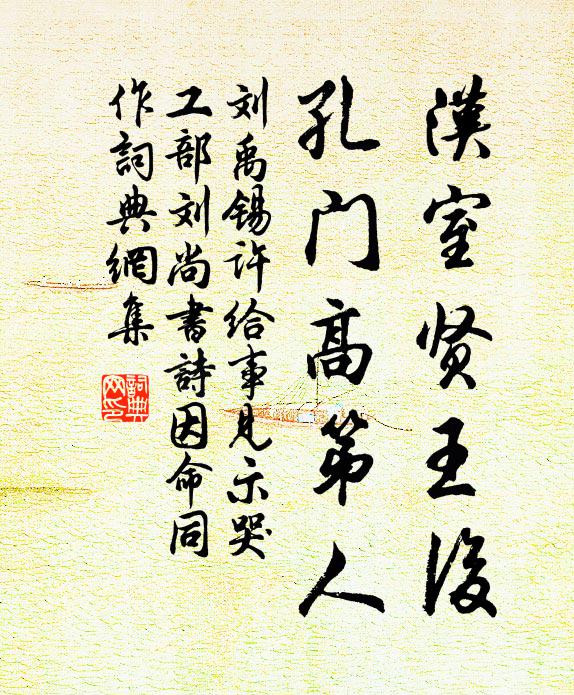 漢室贤王後
孔门高第人
刘禹锡许给事見示哭
工部刘尚書詩因命同
作詞典網集
詞典
网印